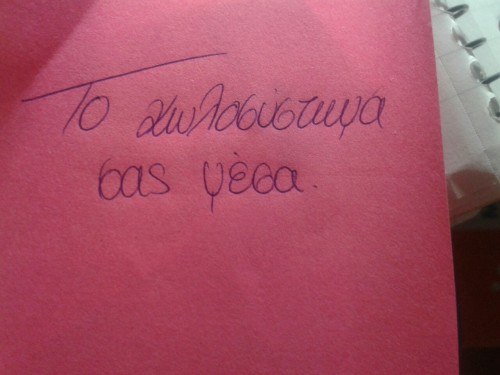 Το κωλοσύστημα
σας μέσα.